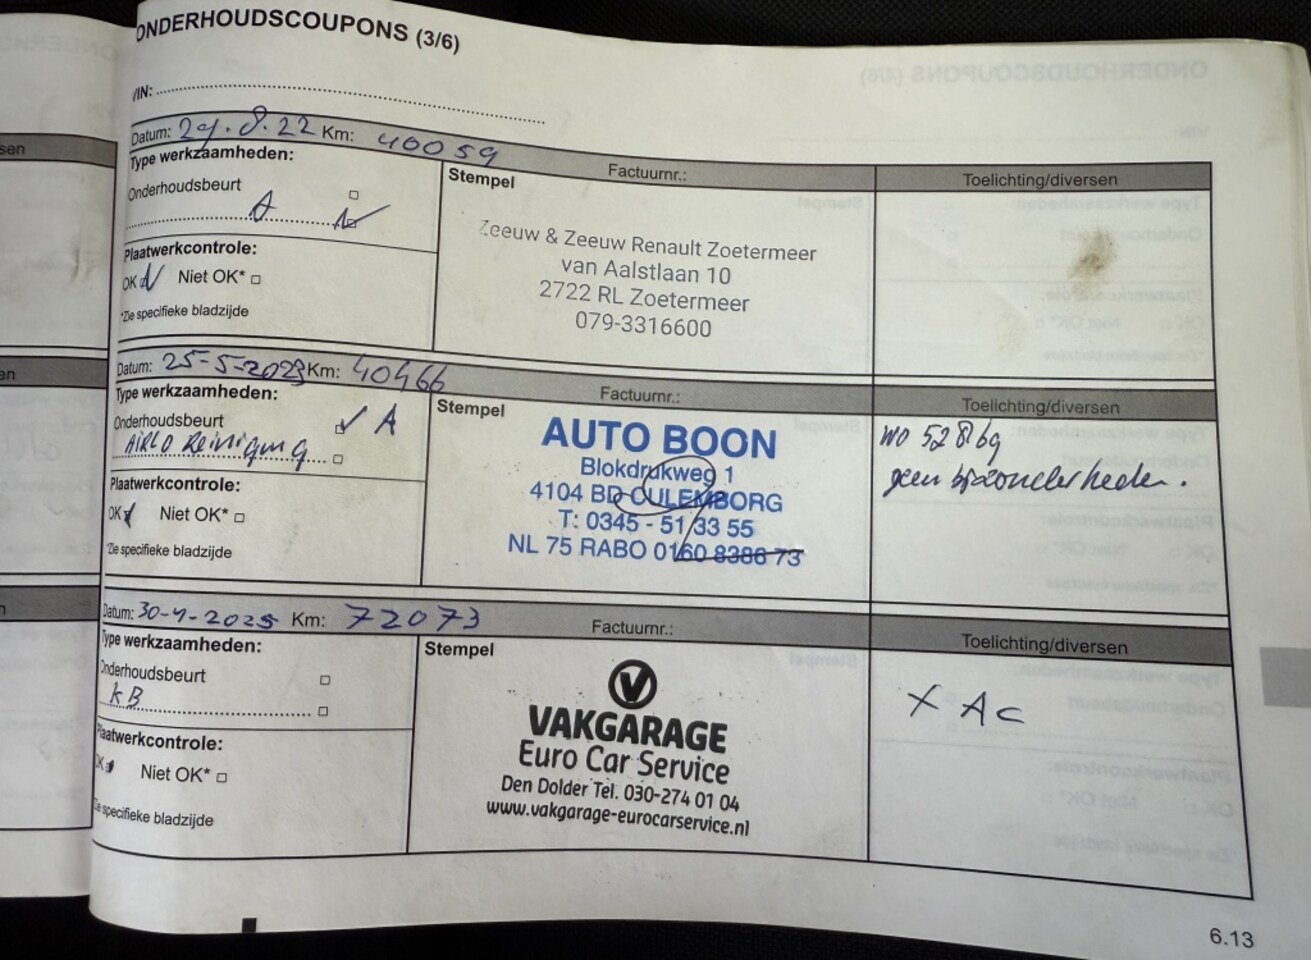 ONDERHOUDSCOUPONS (3/6)
VIN:
Datum: 29.8.22 Km: 40059
Factuurnr.:
Toelichting/diversen
Type werkzaamheden:
Onderhoudsbeurt
A
Plaatwerkcontrole:
OK Niet OK*
*Zie specifieke bladzijde
Stempel
Zeeuw & Zeeuw Renault Zoetermeer
van Aalstlaan 10
2722 RL Zoetermeer
079-3316600
Datum: 25-5-2023 Km: 40466
Factuurnr.:
Toelichting/diversen
Type werkzaamheden:
Onderhoudsbeurt A
AIRCO Reiniging
Plaatwerkcontrole:
OK Niet OK*
*Zie specifieke bladzijde
Stempel
AUTO BOON
Blokdrukweg 1
4104 BD CULEMBORG
T: 0345 - 51 33 55
NL 75 RABO 0160 8386 73
WO 52869
geen bijzonderheden.
Datum: 30-4-2025 Km: 72073
Factuurnr.:
Toelichting/diversen
Type werkzaamheden:
Onderhoudsbeurt
KB
Plaatwerkcontrole:
OK Niet OK*
*Zie specifieke bladzijde
Stempel
VAKGARAGE
Euro Car Service
Den Dolder Tel. 030-274 01 04
www.vakgarage-eurocarservice.nl
X AC
6.13